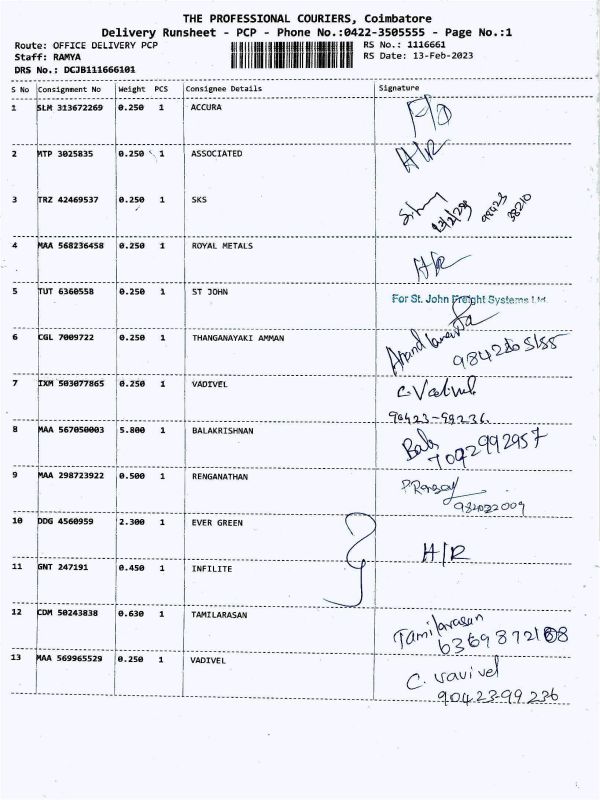 THE PROFESSIONAL COURIERS, Coimbatore
Delivery Runsheet - PCP - Phone No.:0422-3505555 - Page No.:1
Route: OFFICE DELIVERY PCP RS No.: 1116661
Staff: RAMYA RS Date: 13-Feb-2023
DRS No.: DCJB111666101
S No Consignment No Weight PCS Consignee Details Signature
1 SLM 313672269 0.250 1 ACCURA
2 MTP 3025835 0.250 1 ASSOCIATED A/R
3 TRZ 42469537 0.250 1 SKS
4 MAA 568236458 0.250 1 ROYAL METALS A/R
5 TUT 6360558 0.250 1 ST JOHN For St. John Freight Systems Ltd.
6 CGL 7009722 0.250 1 THANGANAYAKI AMMAN
7 IXM 503077865 0.250 1 VADIVEL C. Vadivel
90423-99236
8 MAA 567050003 5.800 1 BALAKRISHNAN Bala
7092992957
9 MAA 298723922 0.500 1 RENGANATHAN
10 DDG 4560959 2.300 1 EVER GREEN A/R
11 GNT 247191 0.450 1 INFILITE
12 CDM 50243838 0.630 1 TAMILARASAN Tamilarasan
13 MAA 569965529 0.250 1 VADIVEL C. Vavivel
90423-99236